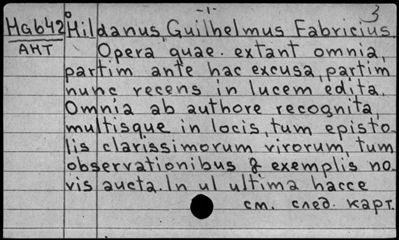 -1-
3
Маб42 Hildanus, Guilhelmus Fabricius.
АНТ Opera quae extant omnia,
partim ante hac excusa, partim
nunc recens in lucem edita.
Omnia ab authore recognita,
multisque in locis, tum episto
lis clarissimorum virorum, tum
observationibus & exemplis no
vis aucta. In ul ultima hacce
см. след. карт.